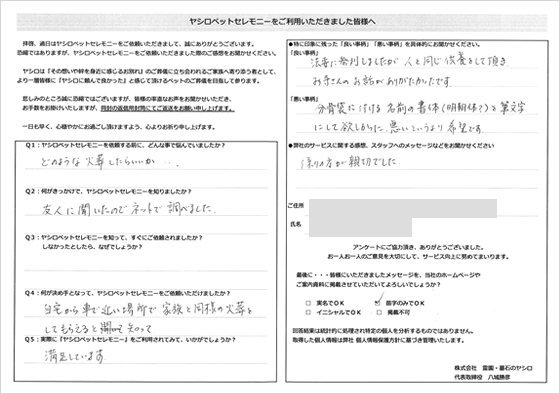 ヤシロペットセレモニーをご利用いただきました皆様へ
拝啓、過日はヤシロペットセレモニーをご依頼いただきまして、誠にありがとうございます。
恐縮ではありますが、ヤシロペットセレモニーをご依頼いただきました際のご感想をお聞かせください。
ヤシロは「その想いや絆を身近に感じるお別れ」のご葬儀に立ち会われるご家族へ寄り添う者として、
より一層皆様に「ヤシロに頼んで良かった」と感じて頂けるペットのご葬儀を目指して参ります。
悲しみのところ誠に恐縮ではございますが、皆様の率直なお声をお聞かせいただき、
お手数をお掛けいたしますが、同封の返信用封筒にてご返送をお願い申し上げます。
一日も早く、心穏やかにお過ごし頂けますよう、心よりお祈り申し上げます。
Q1：ヤシロペットセレモニーを依頼する前に、どんな事で悩んでいましたか？
どのような火葬したらいいか・・・。
Q2：何がきっかけで、ヤシロペットセレモニーを知りましたか？
友人に聞いたのでネットで調べました
Q3：ヤシロペットセレモニーを知って、すぐにご依頼されましたか？
しなかったとしたら、なぜでしょうか？
Q4：何が決め手となって、ヤシロペットセレモニーをご依頼いただけましたか？
自宅から車で近い場所で家族と同様の火葬を
してもらえると 知って
Q5：実際に「ヤシロペットセレモニー」をご利用されてみて、いかがでしょうか？
満足しています
●特に印象に残った「良い事柄」「悪い事柄」を具体的にお聞かせください。
「良い事柄」
法要に参列しましたが人と同じ供養をして頂き
お寺さんのお話がありがたかったです。
「悪い事柄」
分骨袋に付ける名前の書体（明朝体？）を筆文字
にして欲しかった。悪いというより希望です
●弊社のサービスに関する感想、スタッフへのメッセージなどをお聞かせください
係りの方が親切でした。
ご住所
氏名
アンケートにご協力頂き、ありがとうございました。
お一人お一人のご意見を大切にして、サービス向上に努めてまいります。
最後に・・・皆様にいただきましたメッセージを、当社のホームページや
ご案内資料に掲載させていただいてよろしいでしょうか？
□ 実名でＯＫ ☑ 苗字のみでＯＫ
□ イニシャルでＯＫ □ 掲載不可
回答結果は統計的に処理され特定の個人を分析するものではありません。
取得した個人情報は弊社 個人情報保護方針に基づき管理いたします。
株式会社 霊園・墓石のヤシロ
代表取締役 八城勝彦